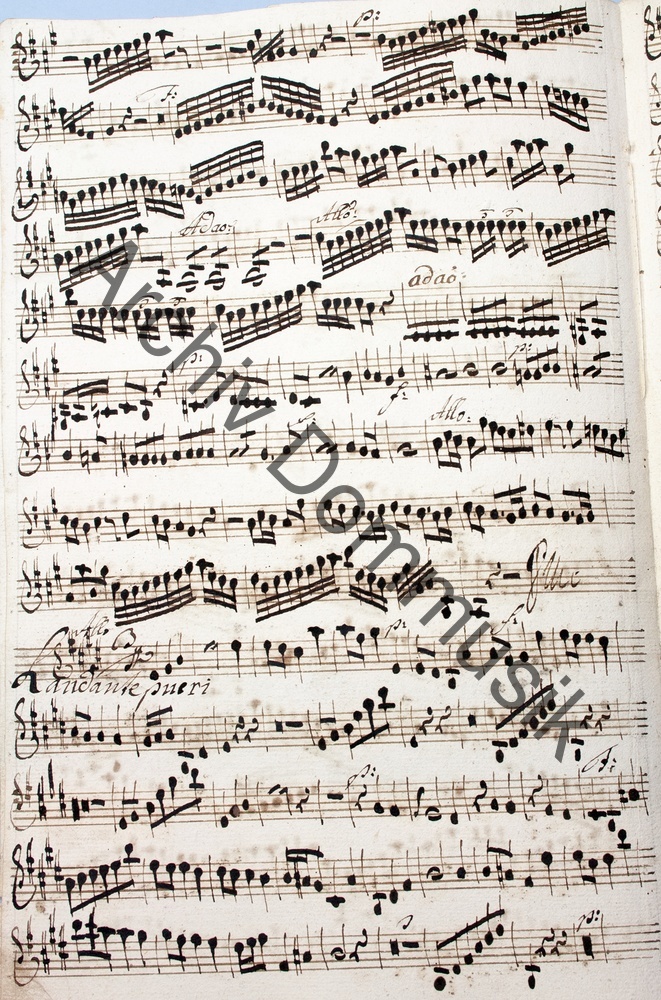 p:
f:
Adao: Allo:
adao:
p: p:
f:
f: Allo:
Allo p: f:
Laudate pueri
p: f:
p:
Archiv Dommusik